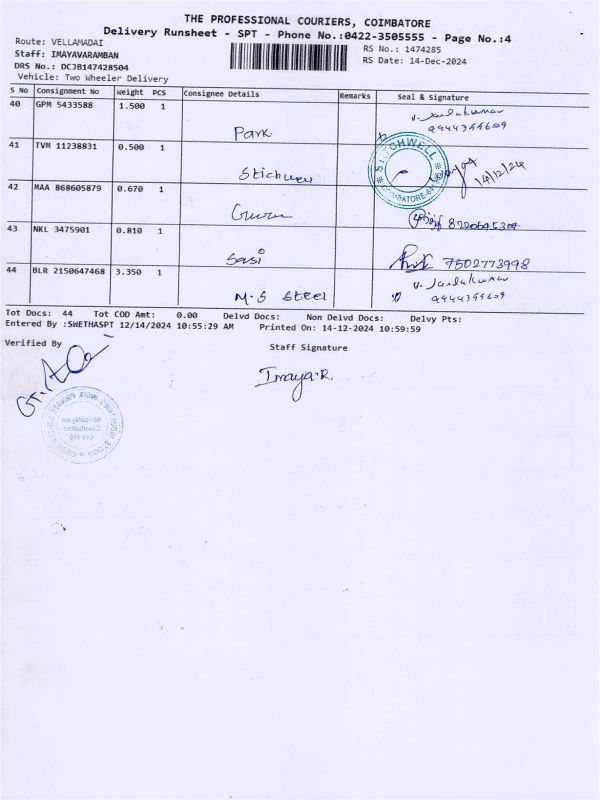 THE PROFESSIONAL COURIERS, COIMBATORE
Delivery Runsheet - SPT - Phone No.:0422-3505555 - Page No.:4
Route: VELLAMADAI
RS No.: 1474285
Staff: IMAYAVARAMBAN
RS Date: 14-Dec-2024
DRS No.: DCJB147428504
Vehicle: Two Wheeler Delivery
S No Consignment No Weight PCS Consignee Details Remarks Seal & Signature
40 GPM 5433588 1.500 1
9944355609
Park
41 TVM 11238831 0.500 1
STICHWELL
COIMBATORE
14/12/24
42 MAA 868605879 0.670 1
43 NKL 3475901 0.810 1
Sasi 7502773998
44 BLR 2150647468 3.350 1
M.S Steel 9944355609
Tot Docs: 44 Tot COD Amt: 0.00 Delvd Docs: Non Delvd Docs: Delvy Pts:
Entered By :SWETHASPT 12/14/2024 10:55:29 AM Printed On: 14-12-2024 10:59:59
Verified By
Staff Signature
Imaya.R.